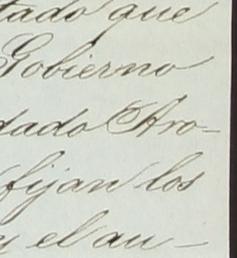 tado que
Gobierno
dado Aro-
fijan los
y el au-